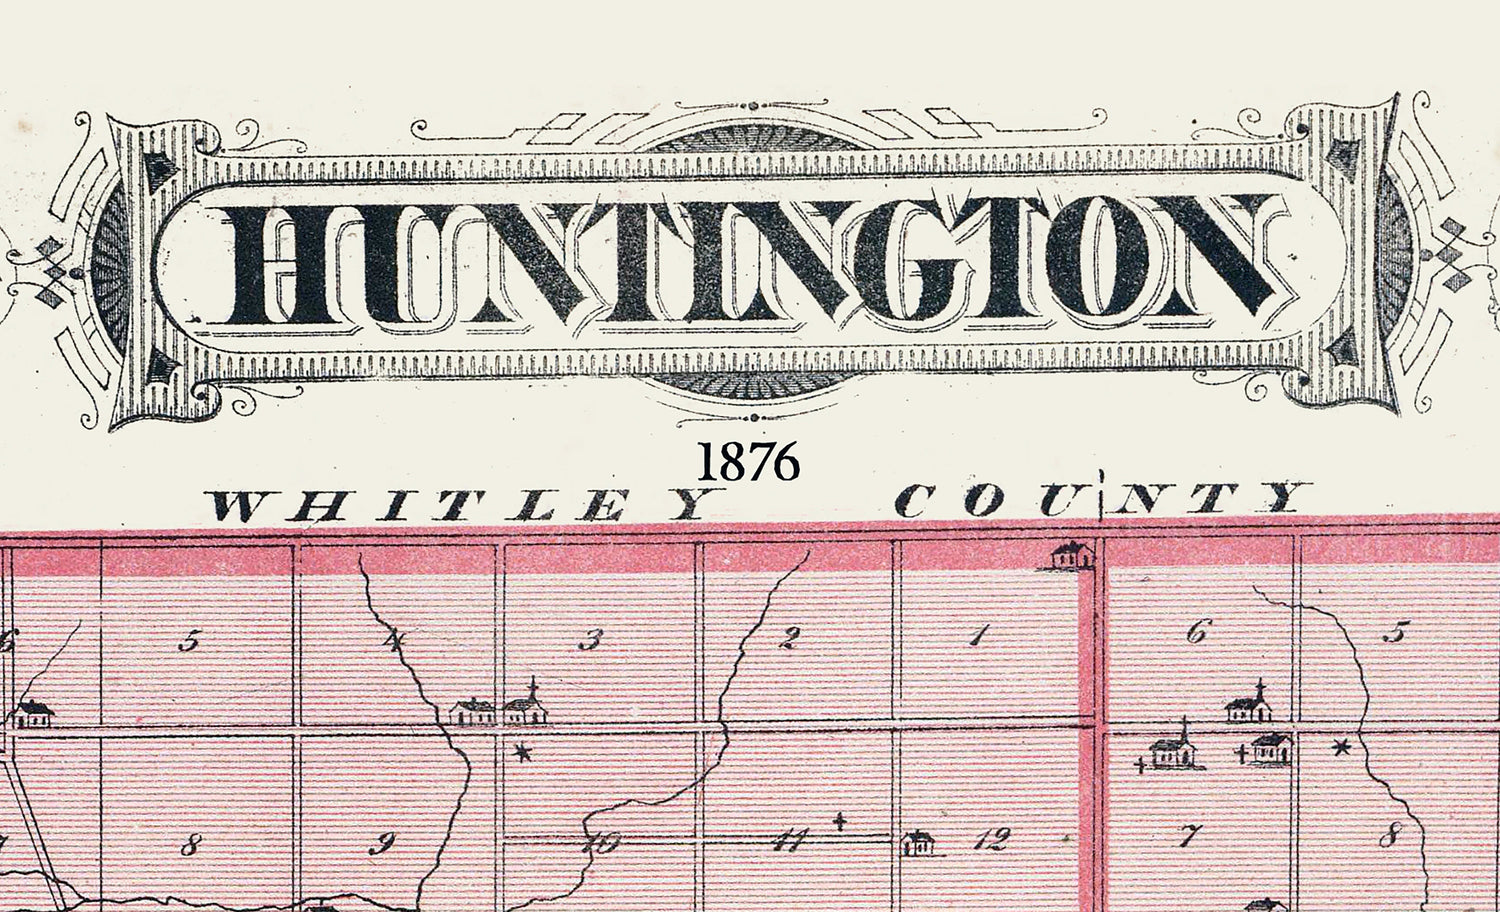 HUNTINGTON
1876
WHITLEY COUNTY
6 5 4 3 2 1 6 5
8 9 10 11 12 7 8